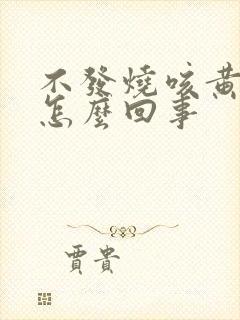 不發燒咳黃
怎麼回事
賈貴